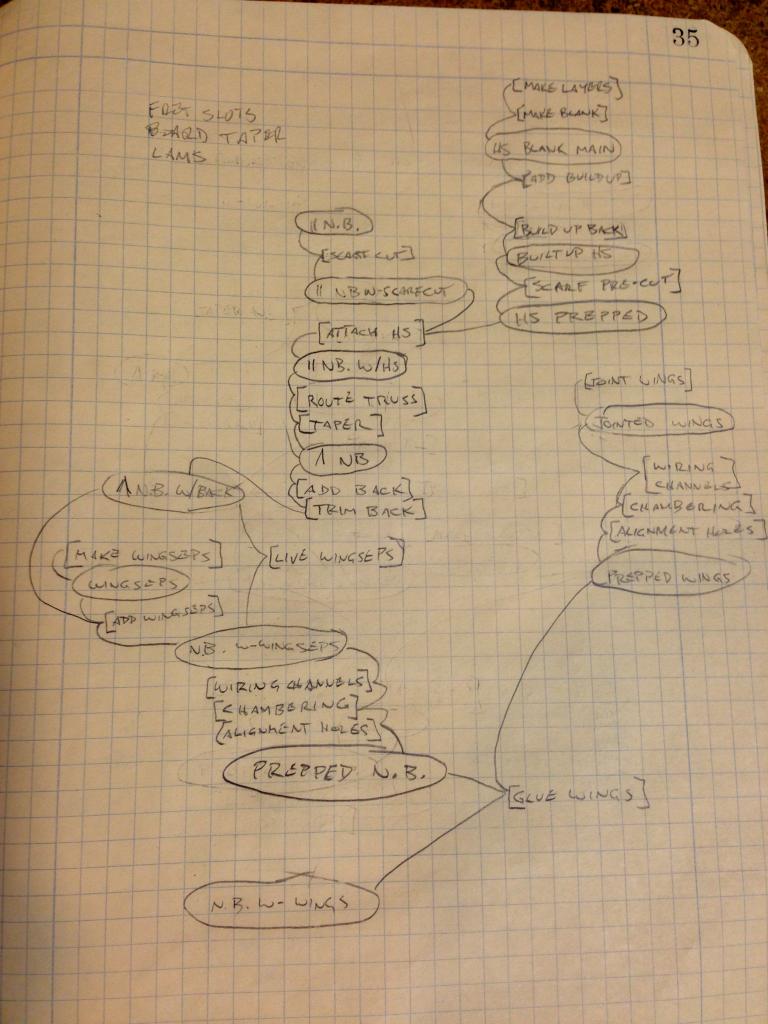 35
FRET SLOTS
BOARD TAPER
LAMS
[MAKE LAYERS]
[MAKE BLANK]
HS BLANK MAIN
[ADD BUILDUP]
[BUILD UP BACK]
BUILT UP HS
[SCARF PRE-CUT]
HS PREPPED
11 N.B.
[SCARF CUT]
11 NB W-SCARFCUT
[ATTACH HS]
11 NB. W/HS
[ROUTE TRUSS]
[TAPER]
Λ NB
[ADD BACK]
[TRIM BACK]
Λ N.B. W/BACK
[MAKE WINGSEPS]
WINGSEPS
[ADD WINGSEPS]
[LIVE WINGSEPS]
N.B. W-WINGSEPS
[WIRING CHANNELS]
[CHAMBERING]
[ALIGNMENT HOLES]
PREPPED N.B.
[JOINT WINGS]
JOINTED WINGS
[WIRING
CHANNELS]
[CHAMBERING]
[ALIGNMENT HOLES]
PREPPED WINGS
[GLUE WINGS]
N.B. W- WINGS